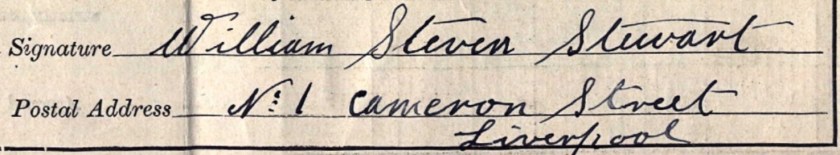 Signature William Steven Stewart
Postal Address No: 1 Cameron Street
Liverpool